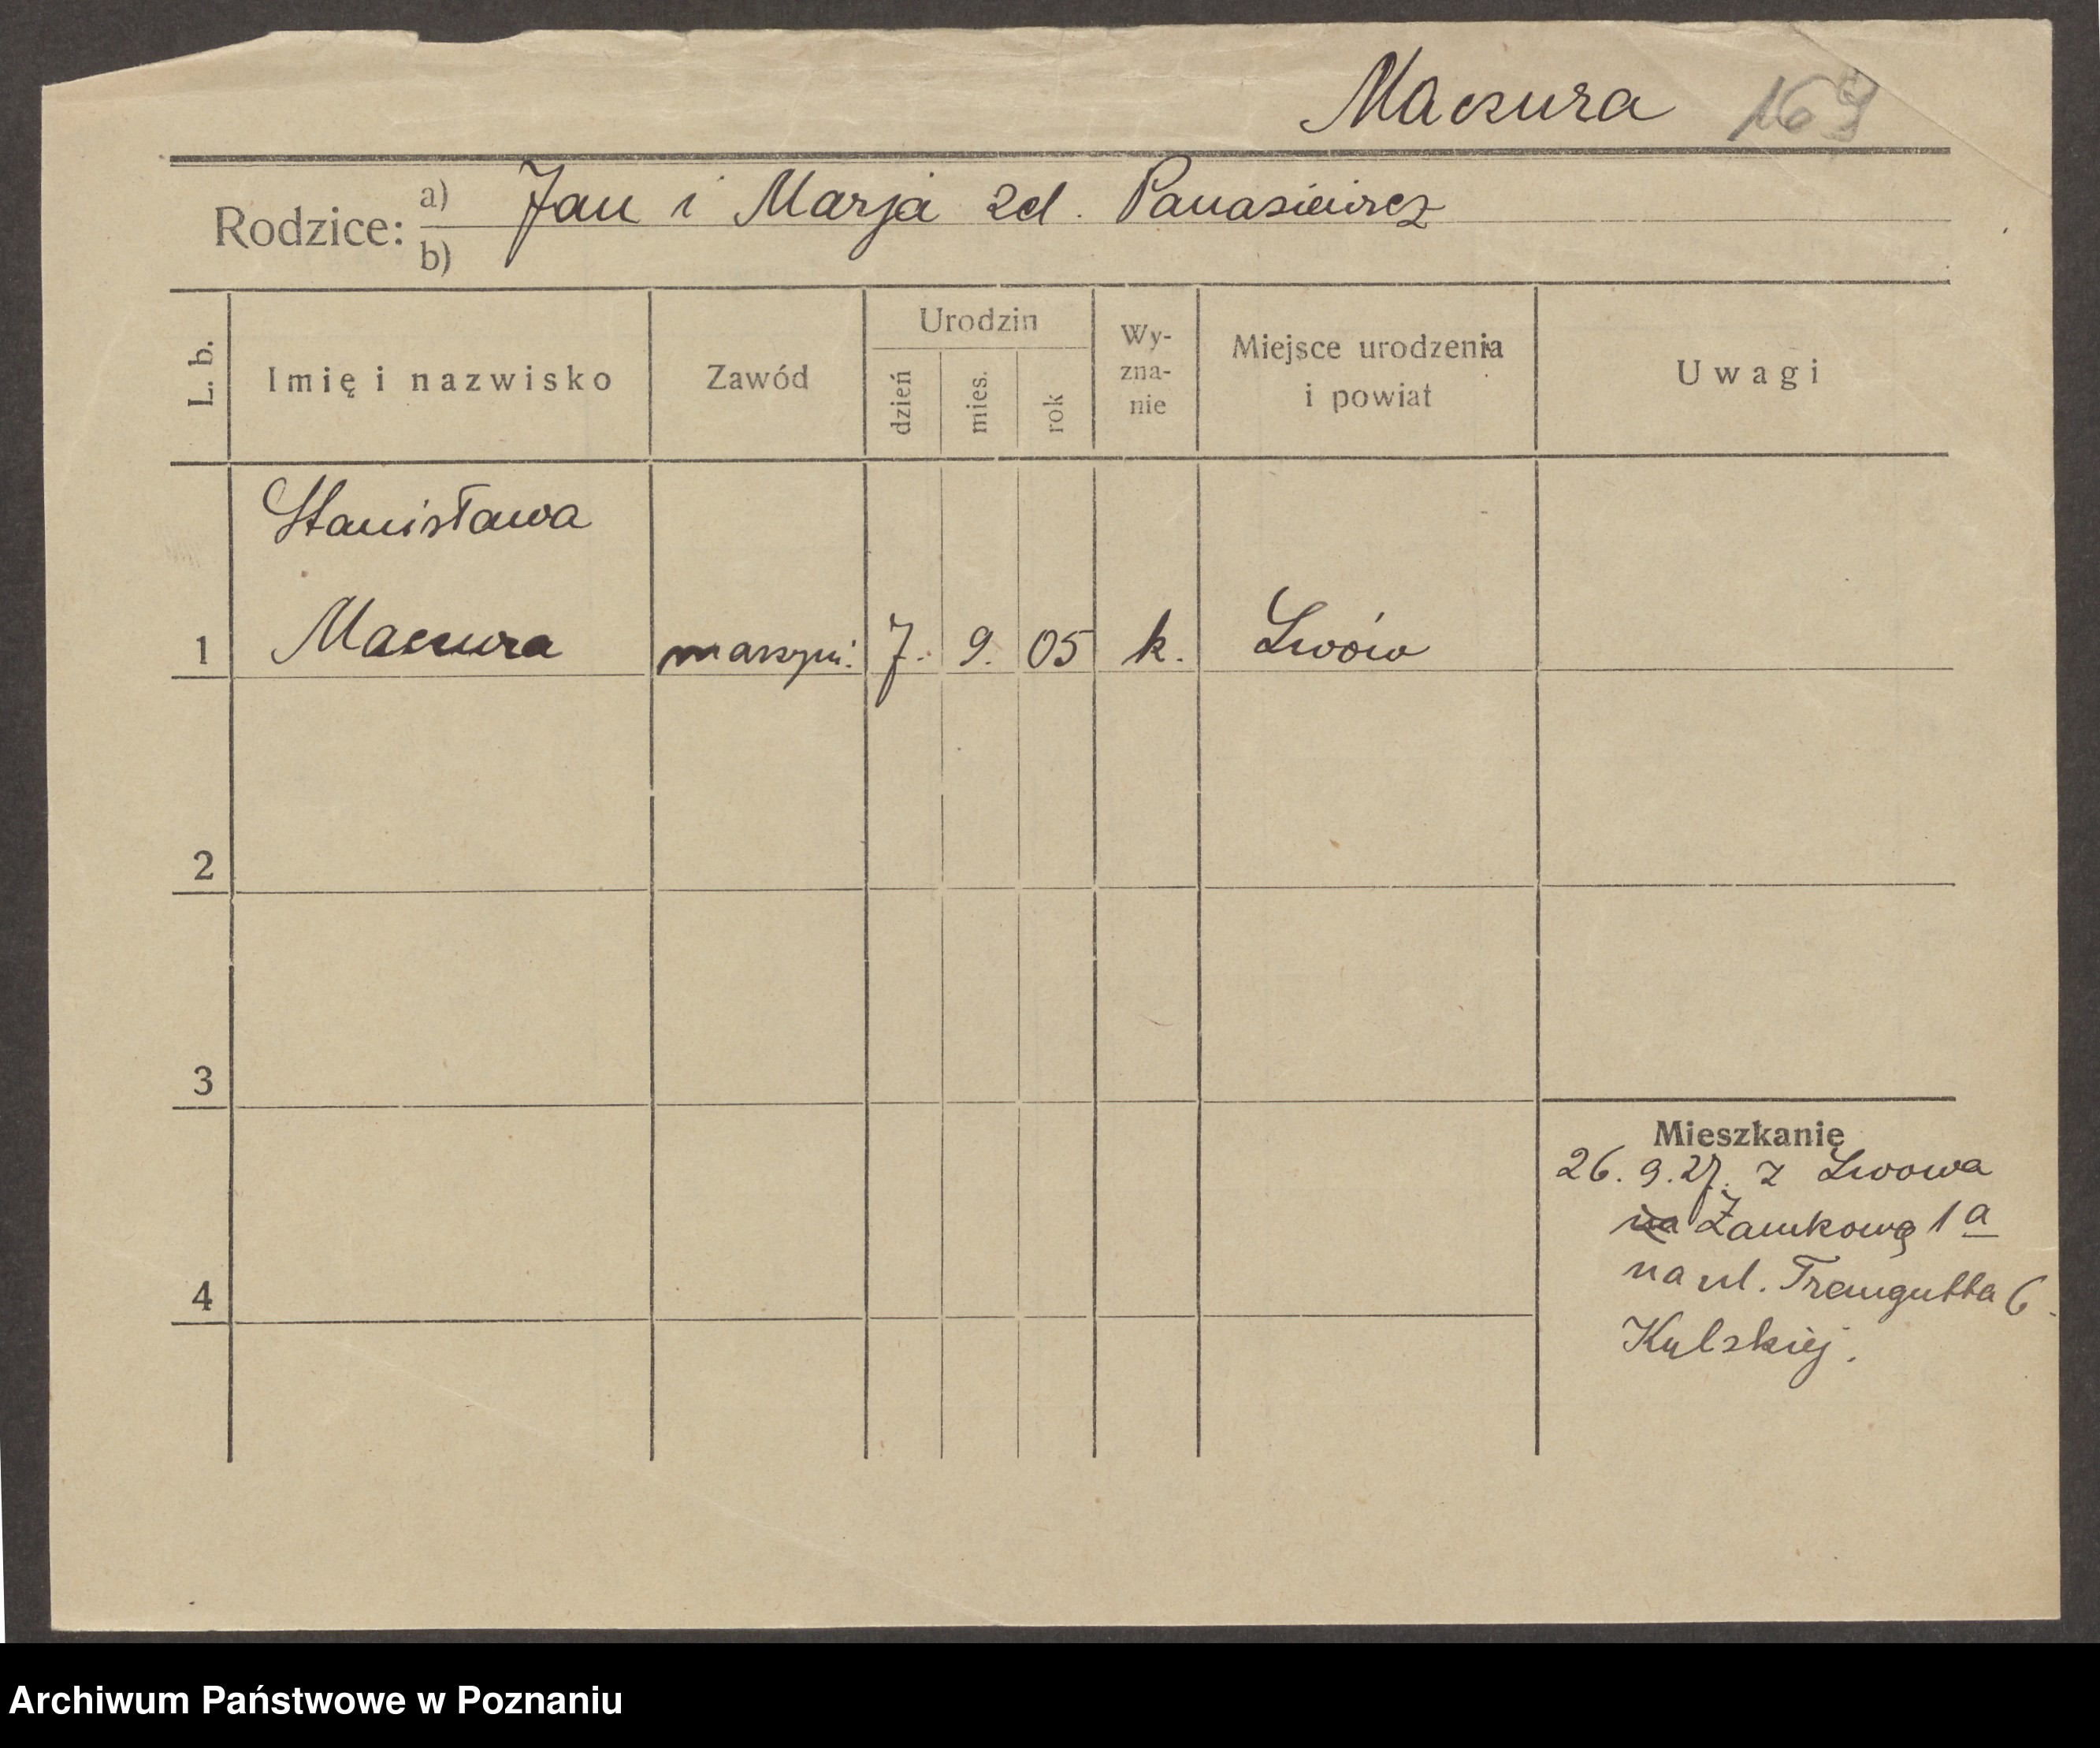 Maczura 169
Rodzice: a) Jan i Marja zd. Panasiewicz
b)
L. b. Imię i nazwisko Zawód Urodzin dzień mies. rok Wy-zna-nie Miejsce urodzenia i powiat Uwagi
Stanisława
1 Maczura maszyni. 7. 9. 05 k. Lwów
2
3
Mieszkanie
26. 9. 27. z Lwowa
na Zamkową 1a
4 na ul. Traugutta 6.
Kulskiej.
Archiwum Państwowe w Poznaniu